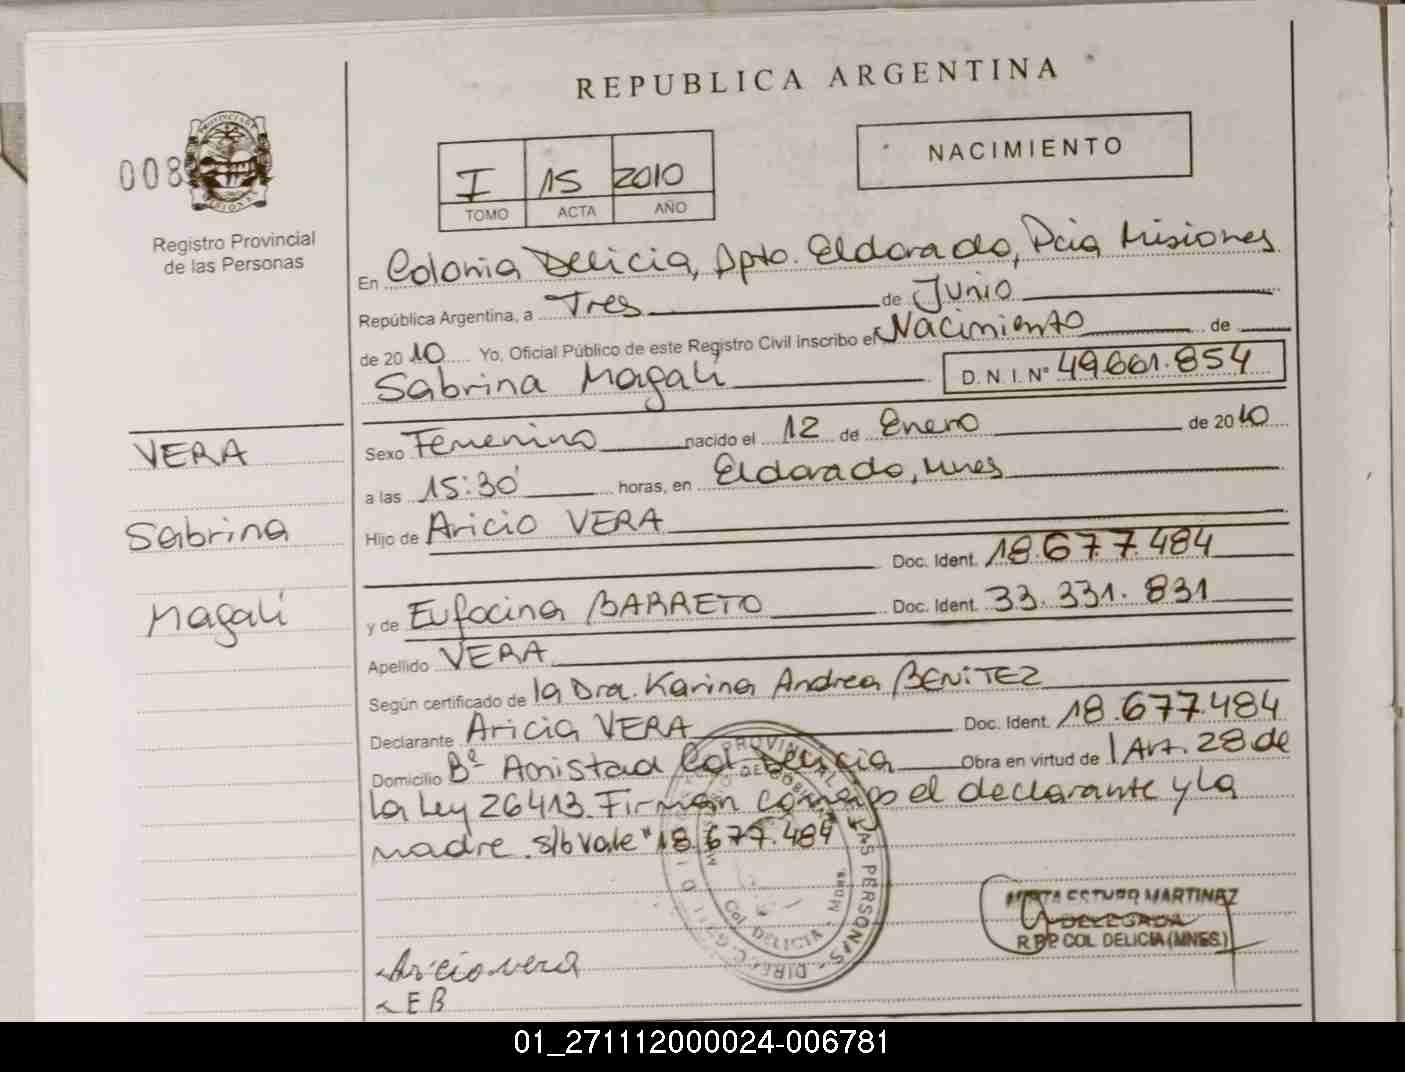 REPUBLICA ARGENTINA
008
I 15 2010
TOMO ACTA AÑO
NACIMIENTO
Registro Provincial
de las Personas
En Colonia Delicia, Dpto. Eldorado, Pcia Misiones
República Argentina, a Tres de Junio
de 2010 Yo, Oficial Público de este Registro Civil inscribo el Nacimiento de
Sabrina Magalí D. N. I. Nº 49.661.854
VERA
Sabrina
Magalí
Sexo Femenino nacido el 12 de Enero de 2010
a las 15:30 horas, en Eldorado, Mnes
Hijo de Aricio VERA
Doc. Ident. 18.677.484
y de Eufocina BARRETO Doc. Ident. 33.331.831
Apellido VERA
Según certificado de la Dra. Karina Andrea BENITEZ
Declarante Aricia VERA Doc. Ident. 18.677.484
Domicilio Bº Amistad Col Delicia Obra en virtud de l Art. 28 de
la Ley 26413. Firman conmigo el declarante y la
madre. s/b vale "18.677.484"
PROVINCIAL DE LAS PERSONAS
Col. DELICIA - Mnes.
MARTINEZ
DELEGADA
R.P.P COL. DELICIA (MNES.)
Aricio vera
E B
01_271112000024-006781